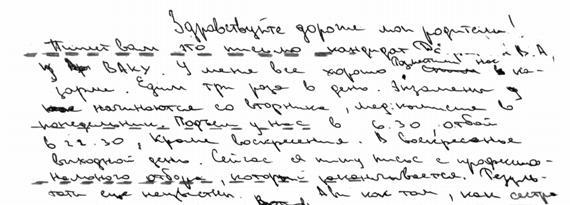 Здравствуйте дороже мои родители!
Пишет вам это письмо кандидат В. А.
ВАКУ. У меня все хорошо нас в ка-
зарме. Едим три раза в день. Экзамены
начинаются со вторника, мед. комиссия в
понедельник. Подъем у нас в 6.30 отбой
в 22.30, Кроме воскресения. В Воскресенье
выходной день. Сейчас я пишу письмо с професио-
нального отбора, который заканчивается. Резуль-
таты еще неизвестны. Как там, как сестра